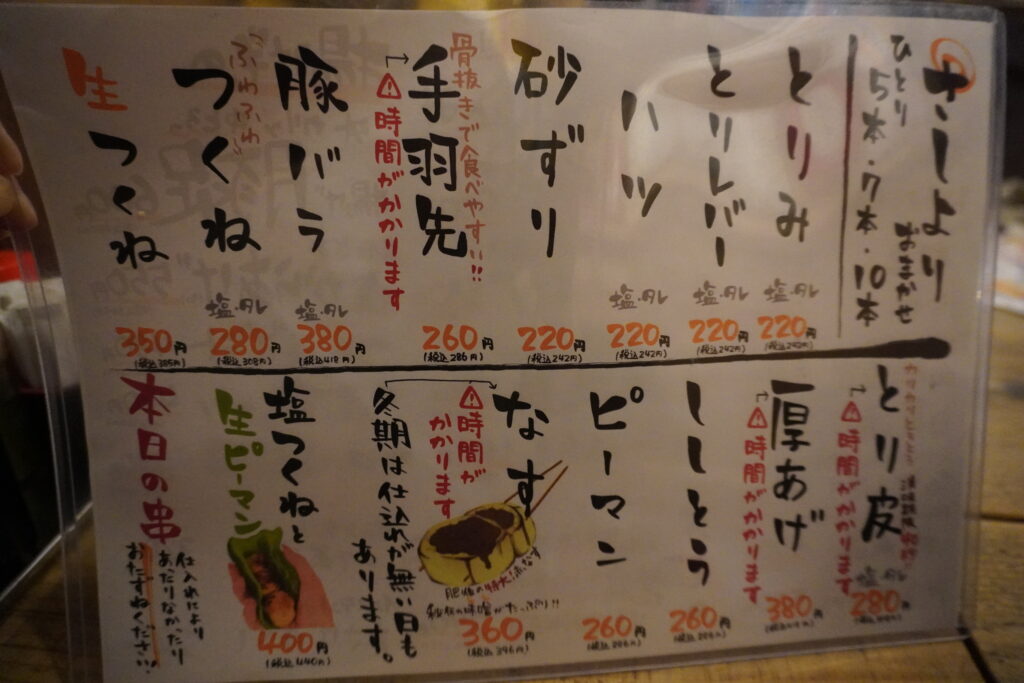 さしより
おまかせ
ひとり
5本・7本・10本
とりみ
塩・タレ
220円
(税込242円)
とりレバー
塩・タレ
220円
(税込242円)
ハツ
塩・タレ
220円
(税込242円)
砂ずり
220円
(税込242円)
骨抜きで食べやすい!!
手羽先
時間がかかります
260円
(税込286円)
豚バラ
塩・タレ
380円
(税込418円)
ふわふわ
つくね
塩・タレ
280円
(税込308円)
生つくね
350円
(税込385円)
とり皮
時間がかかります
塩・タレ
280円
厚あげ
時間がかかります
380円
ししとう
260円
ピーマン
260円
(税込286円)
なす
時間が
かかります
冬期は仕込れが無い日も
あります。
360円
(税込396円)
塩つくねと
生ピーマン
400円
(税込440円)
本日の串
仕入れにより
あったりなかったり
おたずねください!